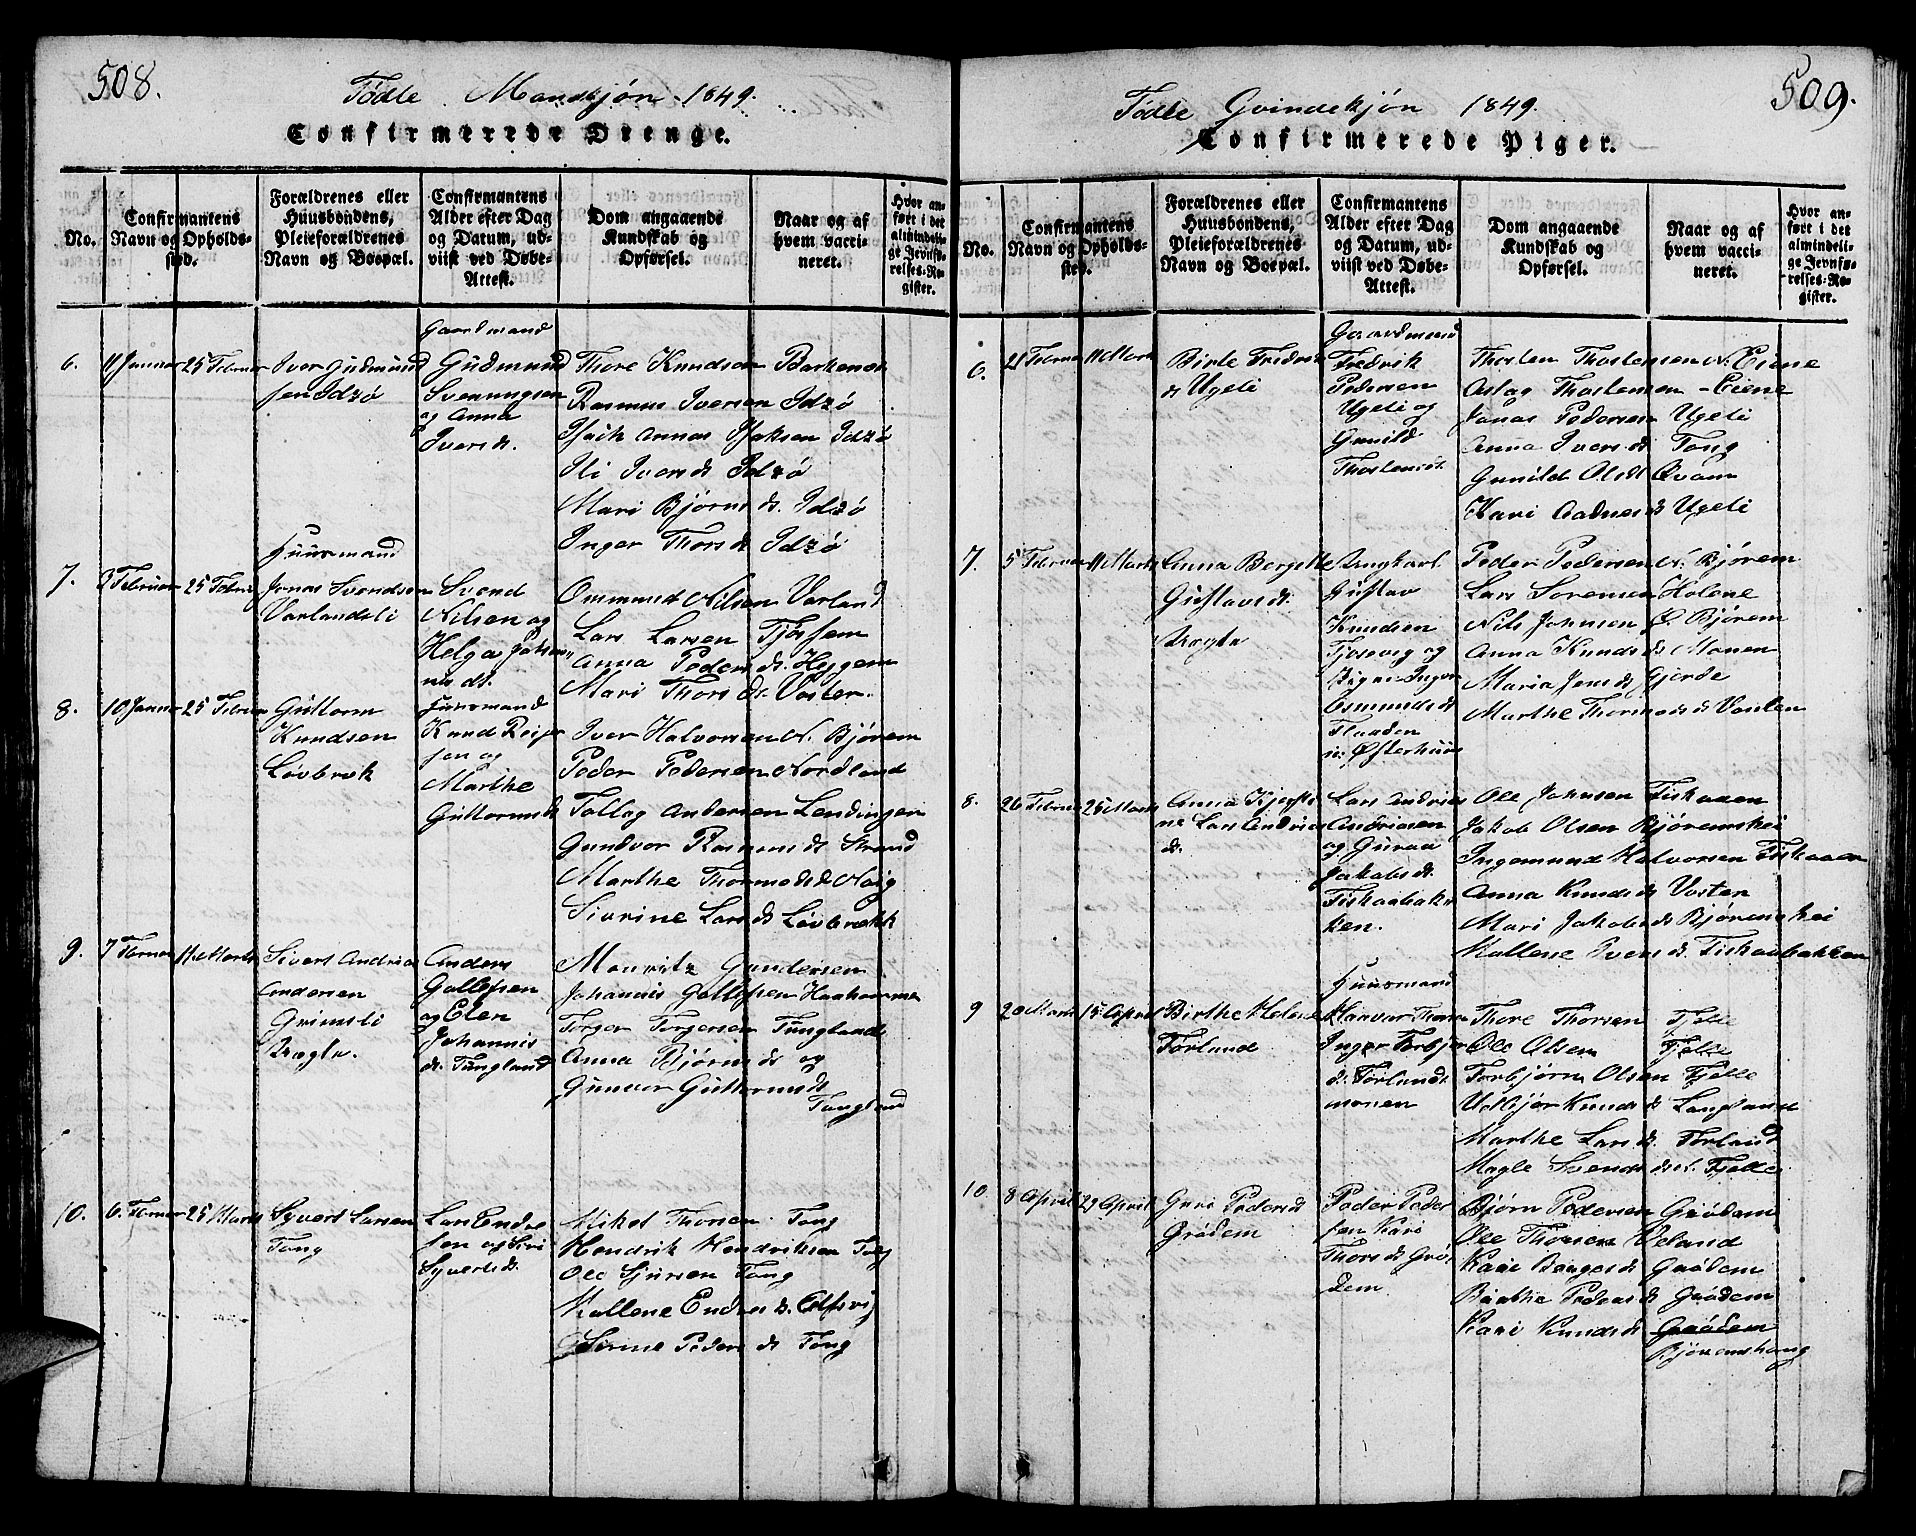 508.
Fødte Mandkjøn 1849.
Confirmerede Drenge.
No.
Confirmantens Navn og Opholdssted.
Forældrenes eller Huusbondens, Pleieforældrenes Navn og Boepæl.
Confirmantens Alder efter Dag og Datum, udviist ved Døbe-Attest.
Dom angaaende Kundskab og Opførsel.
Naar og af hvem vaccineret.
Hvor anført i det almindelige Jevnførelses-Register.
6. 11 Januar 25 Februar
Iver Gudmund
sen Idzø
Gaardmand
Gudmund
Svenungsen
og Anna
Iversd.
Thore Knudsen Barkenes
Rasmus Iversen Idzø
Idzø
Ili Iversd. Idzø
Mari Bjørnsd. Idzø
Inger Thorsd. Idzø
7. Februar 25 Februar
Huusmand
Jonas Svendsen
Varlandsli
Svend
Nilsen og
Helga
Ommund Nilsen Varland
Lars Larsen Tjøssem
Anna Pedersd. Heggem
Mari Thorsd. Voster
8. 10 Januar 25 Februar
Guttorm
Knudsen
Løvbrek
Huusmand
Knud
sen og
Marthe
Guttormsd
Iver Halvorsen N. Bjørem
Peder Pedersen Nordland
Tollag Andersen Lendingen
Gundvor Rasmusd. Strand
Marthe Thormodsd Haig
Sivrine Larsd. Løvbrekk
9. 7 Februar 11 Marts
Sivert Andreas
Andersen
Grimsli
Anders
Gallefsen
og Elen
Johannis
d. Tungland
Mauritz Gundersen
Johannis Gallefsen
Torger Torgersen Tungland
Anna Bjørnsd. og
Gunvor Guttormsd.
Tungland
10. 6. Februar 25 Marts
Syvert Larsen
Tong
Lars Endre
sen og Siri
Syvertsd.
Mikel Thorsen Tong
Hendrik Hendriksen
Ole Sjursen Tong
Mallene Endresd.
Sirine Pedersd. Tong
509.
Fødte Qvindekjøn 1849.
Confirmerede Piger.
No.
Confirmantens Navn og Opholdssted.
Forældrenes eller Huusbondens, Pleieforældrenes Navn og Boepæl.
Confirmantens Alder efter Dag og Datum, udviist ved Døbe-Attest.
Dom angaaende Kundskab og Opførsel.
Naar og af hvem vaccineret.
Hvor anført i det almindelige Jevnførelses-Register.
6. 21 Februar 11 Marts
Birte Fredriks
d. Ugeli
Gaardmand
Fredrik
Pedersen
Ugeli og
Gunild
Thorstensd.
Thorsten Thorstensen N. Eiene
Aslag Thorstensen - Eiene
Jonas Pedersen Ugeli
Anna Iversd. Tong
Gunild Olsd. Qvam
Kari Aadnesd. Ugeli
7. 5 Februar 11 Marts
Anna Bergitte
Gustavsd.
Ungkarl
Gustav
Knudsen
Tjosevig og
Pigen Inger
Osmundsd.
Peder Pedersen N. Bjørem
Lars Sorensen Holene
Nils Johnsen Ø. Bjørem
Anna Knudsd. Monen
Maria Jensd. Gjerde
Marthe Thormodsd.
8. 26 Februar 25 Marts
Lars Andrias
Andriasen
og Guraa
Jakobsd.
Fiskaabak-
ken.
Ole Johnsen Fiskaaen
Jakob Olsen Bjøremshei
Ingemund Halvorsen Fiskaaen
Anna Knudsd. Voster
Mari Jakobsd. Bjøremshei
Mallene Iversd. Fiskaabakken
9 20 Marts 15 April
Birthe Helene
Førland
Huusmand
Inger Torbjør
d. Førlands
monen
Thore Thorsen Fjelle
Ole Olsen Fjelle
Torbjørn Olsen Fjelle
Udbjør Knudsd. Langland
Marthe Larsd. Førland
Magle Svendsd. N. Fjelle
10. 8 April 29 April
Guri Pedersd
Grødem
Peder Peder
sen Kari
Thorsd. Grø
dem
Bjørn Pedersen Grødem
Ole Thorsen Veland
Kari Børgesd. Grødem
Birthe Pedersd. Grødem
Kari Knudsd. Grødem
Bjøremshaug